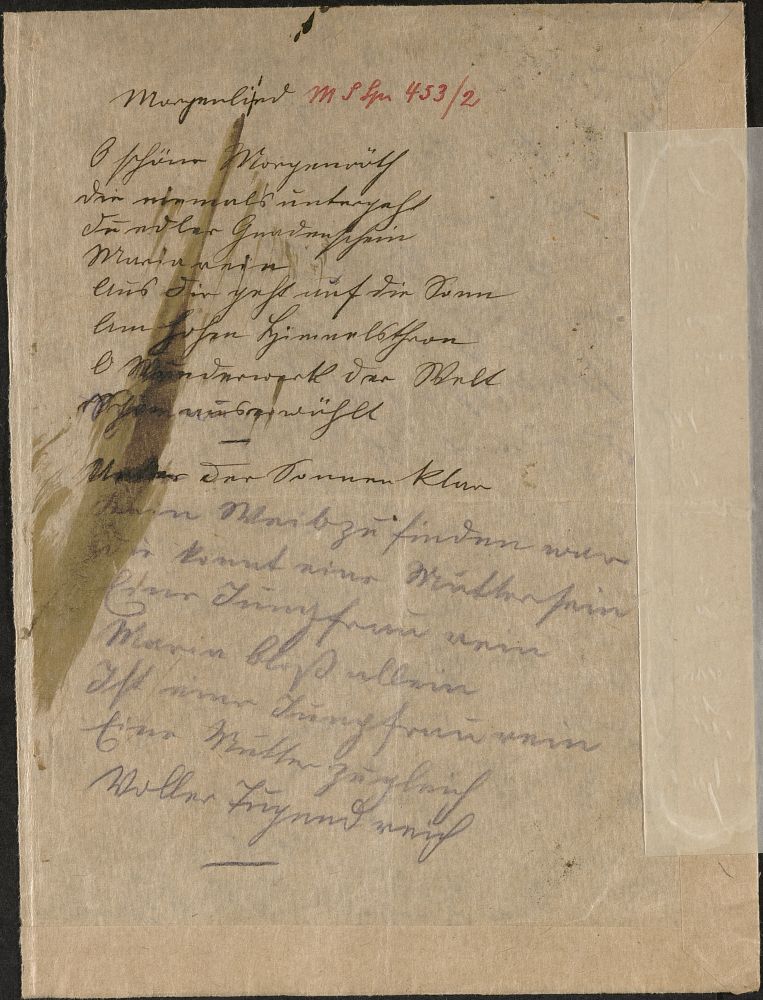 Morgenlied MS Spr 453/2
O schöne Morgenröth
die niemals untergeht
du edler Gnadenschein
Maria rein
Aus dir geht auf die Sonn
Am hohen Himmelsthron
O Wunderwerk der Welt
Schön auserwählt
Unter der Sonnen klar
Kein Weib zu finden war
die konnt eine Mutter sein
Eine Jungfrau rein
Maria bloß allein
Ist eine Jungfrau rein
Eine Mutter zugleich
Voller Tugend reich